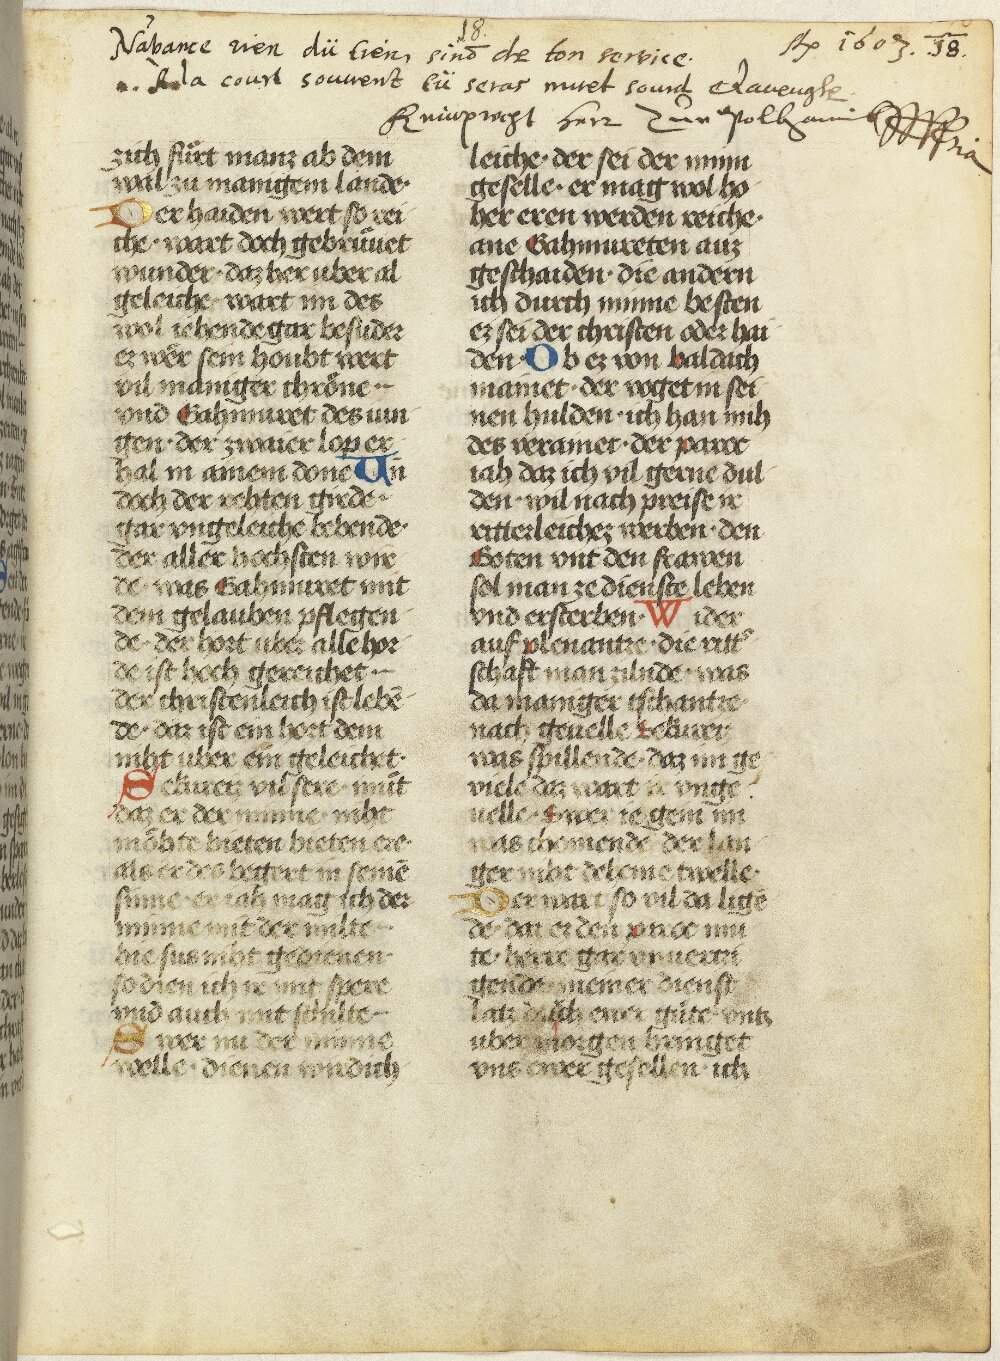 18.
Navance rien dü tien, sinō de ton service. Ao 1607. 18.
A la court souvent tü seras muet sourd et aveugle.
herr Zum Polhaim
zuh fürt manz ab dem
wal zu manigem lande·
Der haiden wert so rei
che· wart doch gebrüuet
wunder· daz her uber al
geleiche· wart im des
wol iehende gar besuder
er wêr sein houbt wert
vil maniger chrône·
vnd Gahmuret des iun
gen· der zwaier lop er
hal in ainem done Un
doch der rehten girde·
gar vngeleiche hebende·
der aller hochsten wir
de· was Gahmuret mit
dem gelauben pflegen
de· der hort uber alle hor
de ist hoch gereichet·
der christenleich ist lebē
de· daz ist ein hort dem
niht uber ein geleichet·
Sekurei vil sere· müt
daz er der minne· niht
môhte bieten bieten ere·
als er des begert in seinē
sinne· er iah mag ich der
minne mit der milte·
hie sus niht gedienen·
so dien ich ir mit spere
vnd auch mit schilte·
Swer nu der minne
welle· dienen wirdich
leiche· der sei der minn
geselle· er mag wol ho
her eren werden reiche·
ane Gahmureten auz
geschaiden· die andern
ich durch minne besten
er sei der christen oder hai
den· Ob ez von baldach
mainet· der voget in sei
nen hulden· ich han mih
des verainet· der paroc
iah daz ich vil gerne dul
den· wil nach preise ir
ritterleichez werben· den
Goten vnt den frawen
sol man ze dienste leben
vnd ersterben· Wider
auf plenantze· die ritt
schaft man zilnde· was
da maniger tschantze·
nach geuelle Sekurei
was spillende· daz im ge
viele daz wart ir vnge
uelle· Swer ie gein im
was chomende· der lan
ger niht deheine twelle·
Der wart so vil da ligē
de· daz er den paroc mu
te· herre gar vnuerzi
gende· meiner dienst
latz durch ewer güte· vntz
uber morgen bringet
vns ewer gesellen· ich